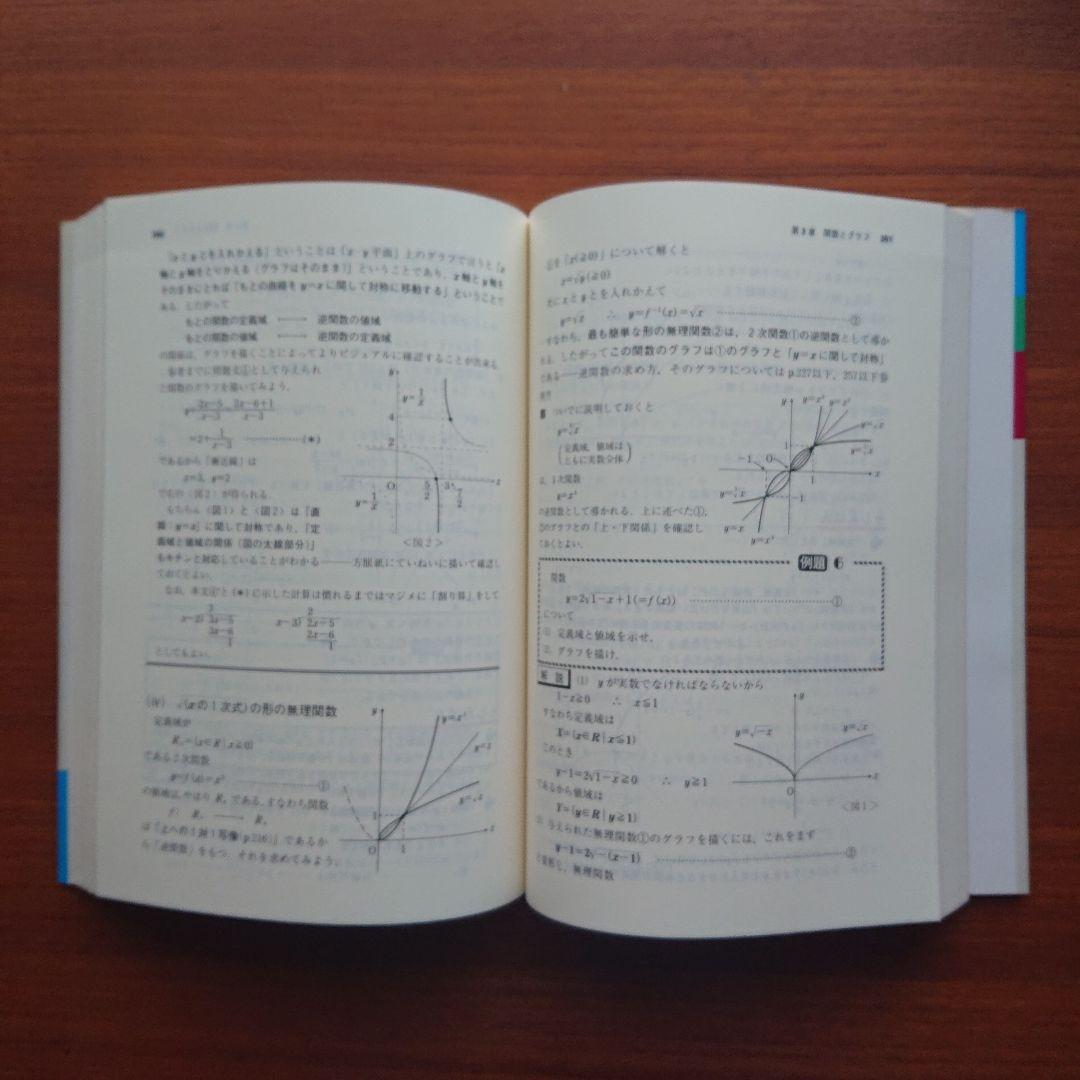 「xとyとを入れかえる」ということは「x-y平面」上のグラフで言うと「x
軸とy軸をとりかえる(グラフはそのまま)」ということであり,x軸とy軸を
そのままにとれば「もとの曲線をy=xに関して対称に移動する」ということで
ある.したがって
もとの関数の定義域 ←→ 逆関数の値域
もとの関数の値域 ←→ 逆関数の定義域
の関係は,グラフを描くことによってよりビジュアルに確認することが出来る.
と関数のグラフを描いてみよう.
y=(2x-5)/(x-3)=(2x-6+1)/(x-3)
=2+1/(x-3) ……(*)
であるから「漸近線」は
x=3, y=2
もちろん〈図1〉と〈図2〉は「直
線 y=x」に関して対称であり,「定
義域と値域の関係(図の太線部分)」
もキチンと対応していることがわかる——方眼紙にていねいに描いて確認し
ておくとよい.
(*)に示した計算は慣れるまではマジメに「割り算」をして
としてもよい.
y=1/x
4
2
O
5/2
3
7/2
x
y
y=1/x
〈図2〉
(iv) √(xの1次式)の形の無理関数
定義域が
R₊={x∈R|x≧0}
である2次関数
の値域は,やはりR₊である.すなわち関数
は「上への1対1写像(p.216)」であるか
ら「逆関数」をもつ.それを求めてみよう.
y
y=x²
y=x
y=√x
1
O
1
x
第3章 関数とグラフ
①を「x(≧0)」について解くと
x=√y(≧0)
次にxとyとを入れかえて
y=√x ∴ y=f⁻¹(x)=√x ……②
すなわち,最も簡単な形の無理関数②は,2次関数①の逆関数として導か
れる.したがってこの関数のグラフは①のグラフと「y=xに関して対称」
である——逆関数の求め方,そのグラフについてはp.227以下,257以下参
ついでに説明しておくと
y=∛x
(定義域,値域は
ともに実数全体)
y=x³
の逆関数として導かれる.上に述べた①,
②のグラフとの「上・下関係」を確認し
ておくとよい.
y
y=x³
y=x²
y=√x
y=∛x
-1
O
1
1
x
y=∛x
-1
y=x
y=x³
例題 6
関数
y=2√(1-x)+1(=f(x)) ……①
について
(1) 定義域と値域を示せ.
(2) グラフを描け.
解説 (1) yが実数でなければならないから
1-x≧0 ∴ x≦1
すなわち定義域は
X={x∈R|x≦1}
このとき
y-1=2√(1-x)≧0 ∴ y≧1
であるから値域は
Y={y∈R|y≧1}
(2) 与えられた無理関数①のグラフを描くには,これをまず
y-1=2√-(x-1) ……②
と変形し,無理関数
y
y=√-x
y=√x
O
x
〈図1〉